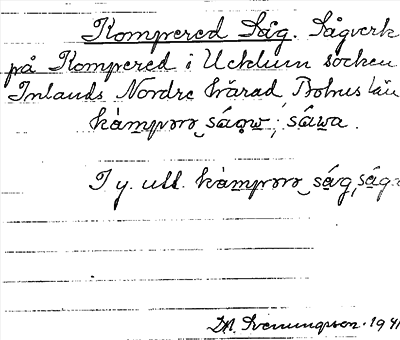 Kompered Såg. Sågverk
på Kompered i Ucklum socken
Inlands Nordre härad, Bohus län
kàmpərə sáǫw; sáwa.
I y. utt. kàmpərə ság, sága
M. Svenungsson. 1941